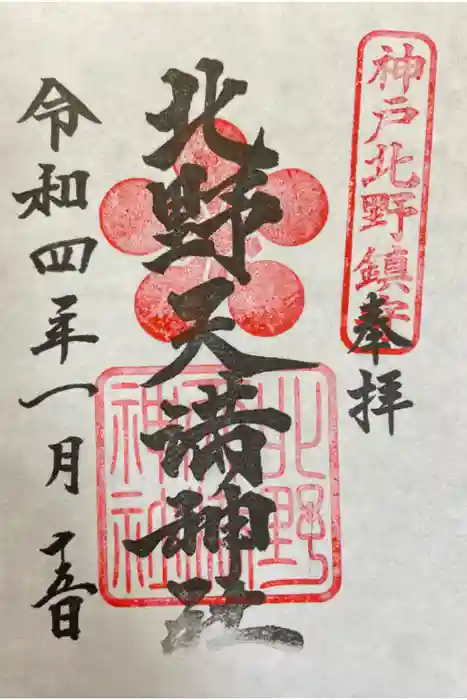 神戸北野鎮守
奉拝
北野天満神社
北野
神社
令和四年一月十五日